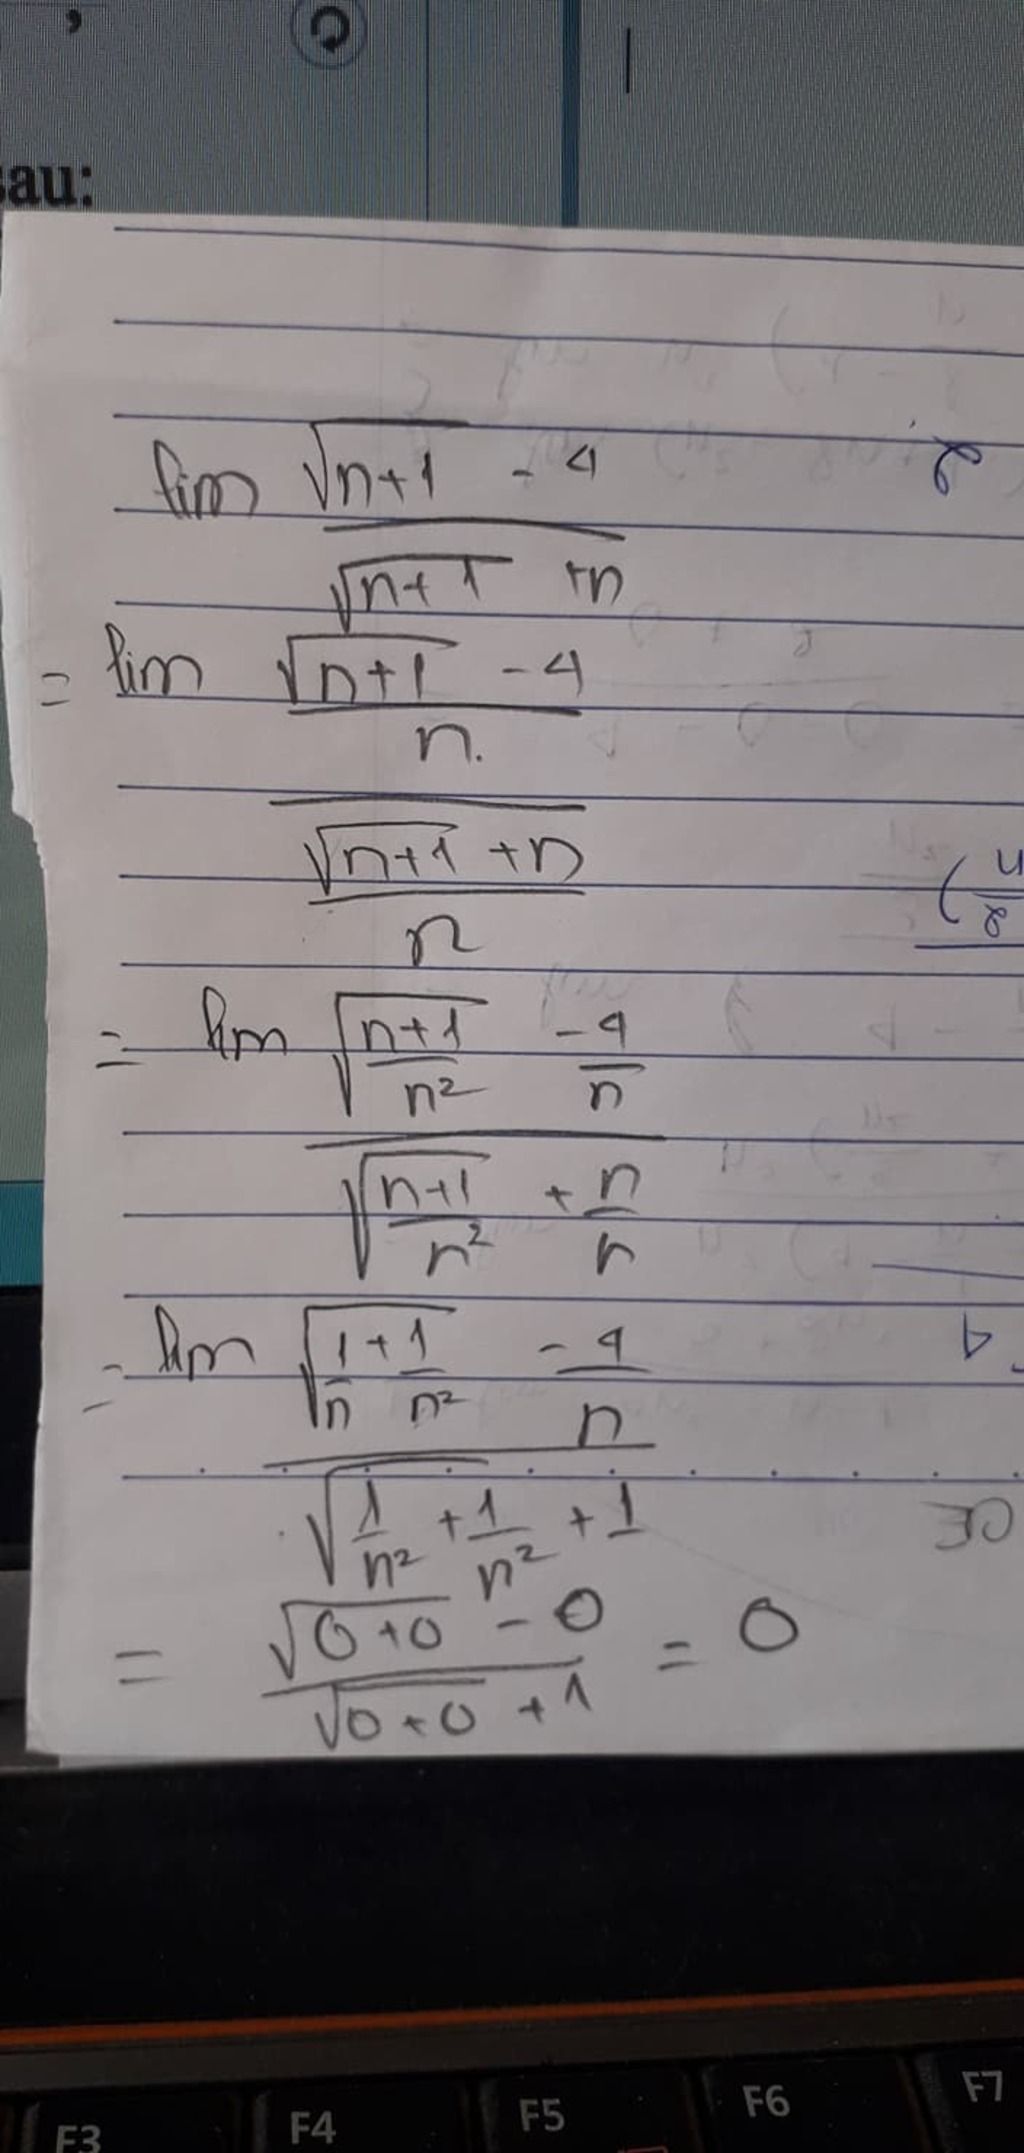 ,
sau:
lim √n+1 - 4
√n+1 +n
= lim √n+1 - 4
n.
√n+1 +n
n
= lim √n+1 - 4
n² n
√n+1 + n
n² n
= lim √1 + 1 - 4
n n² n
√1 + 1 + 1
n² n²
= √0+0 - 0 = 0
√0+0 + 1
F3 F4 F5 F6 F7